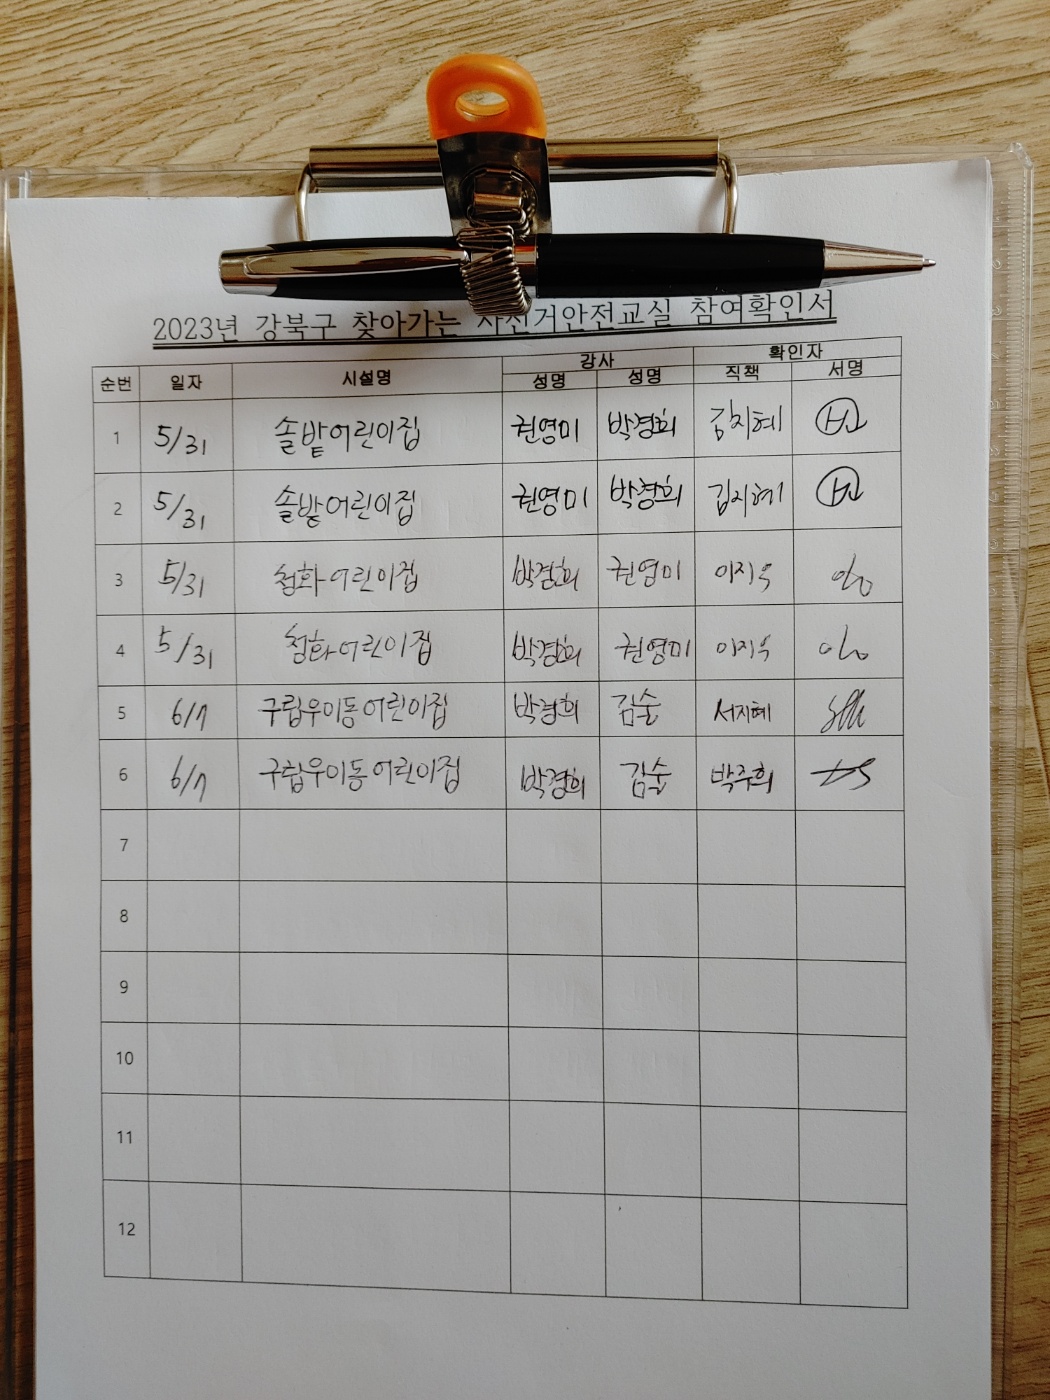 2023년 강북구 찾아가는 자전거안전교실 참여확인서
순번 일자 시설명 강사 확인자
성명 성명 직책 서명
1 5/31 솔밭어린이집 권영미 박경희 김지혜
2 5/31 솔밭어린이집 권영미 박경희 김지혜
3 5/31 청화어린이집 박경희 권영미 이지우
4 5/31 청화어린이집 박경희 권영미 이지우
5 6/7 구립우이동어린이집 박경희 김술 서지혜
6 6/7 구립우이동어린이집 박경희 김술 박주희
7
8
9
10
11
12